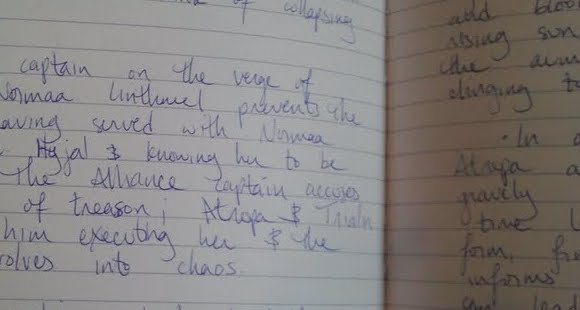 of collapsing
captain on the verge of
Normaa Linthavel prevents the
aving served with Normaa
Hyjal & knowing her to be
the Alliance captain accuses
of treason; Atropa & Trialn
him executing her & the
olves into chaos.
and bloo
rising sun
the arm
clinging t
· In a
Atropa a
gravely
time
form, fr
informs
can lead